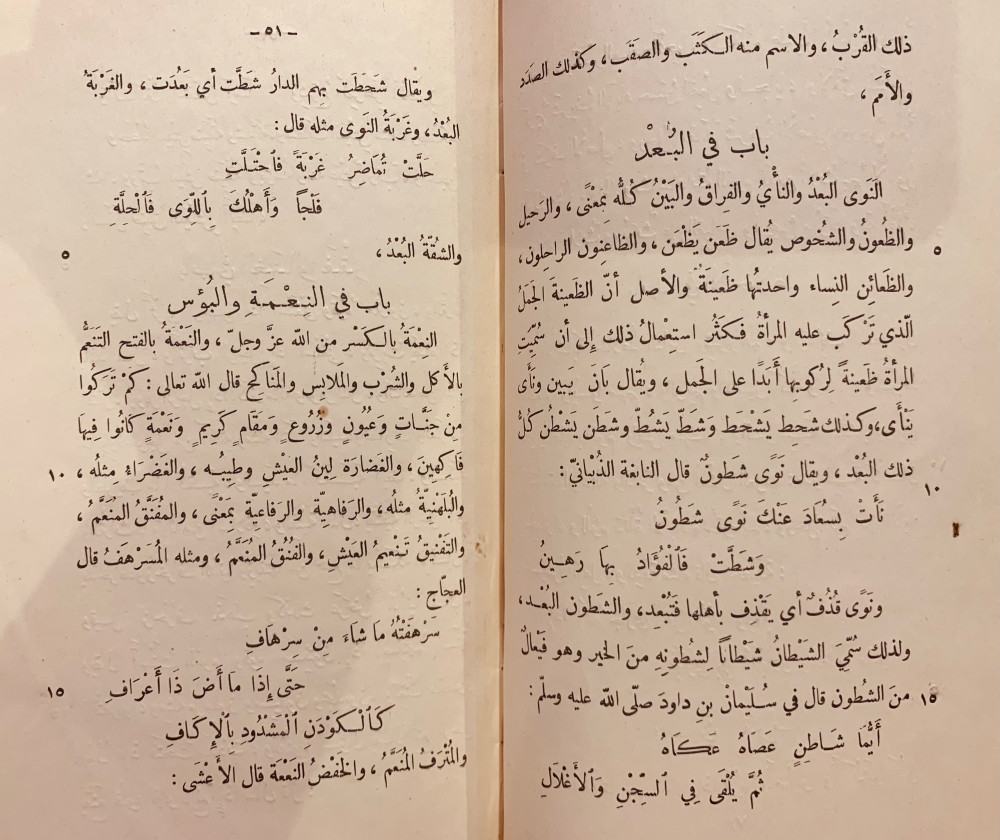 ذلك القُرْبُ، والاسم منه الكَثَب والصقَب، وكذلك الصدَد
والأمَم،
باب في البُعْد
النَوى البُعْدُ والنأْيُ والفِراقُ والبَيْنُ كلُّه بِمعْنًى، والرَحيل
والظُعونُ والشُخوص يُقال ظَعَن يَظْعَن، والظاعِنون الراحلون،
والظَعائن النِساء واحدتُها ظَعينَةٌ والأصل أنّ الظَعينةَ الجَمَلُ
الّذي تَرْكَب عليه المرأةُ فكَثُر استعْمالُ ذلك إلى أن سُمِّيَتِ
المرأةُ ظَعينةً لِركوبها أَبَدًا على الجَمل، ويُقال بَانَ يَبين ونَأى
يَنْأَى، وكذلك شَحَط يَشْحَط وشَطَّ يَشُطّ وشَطَن يَشْطُن كُلُّ
٥
ذلك البُعْد، ويقال نَوًى شَطونٌ قال النابغة الذُبْيانيّ:
١٠
نَأَتْ بِسُعَادَ عَنْكَ نَوًى شَطُونُ
وَشَطَّتْ فَٱلْفُؤَادُ بِهَا رَهِينُ
ونَوًى قُذُفٌ أي يَقْذِف بأهلها فَتُبْعِد، والشَطون البُعْد،
ولذلك سُمِّيَ الشَيْطانُ شَيْطانًا لِشُطونِهِ منَ الخير وهو فَيْعالٌ
منَ الشُطون قال في سُلَيْمانَ بنِ داودَ صلّى الله عليه وسلّم:
١٥
أَيُّمَا شَاطِنٍ عَصَاهُ عَكَاهُ
ثُمَّ يُلْقَى فِي ٱلسِّجْنِ وَٱلْأَغْلَالِ
- ٥١ -
ويقال شَحَطَت بِهِم الدارُ شطَّت أي بَعُدَت، والغَرْبَةُ
البُعْدُ، وغَرْبَةُ النَوى مثله قال:
حَلَّتْ تُمَاضِرُ غَرْبَةً فَاحْتَلَّتِ
فَلْجًا وَأَهْلُكَ بِٱللِّوَى فَٱلْحِلَّةِ
والشُقّةُ البُعْدُ،
٥
باب في النِعْمَةِ والبُؤس
النِعْمَةُ بالكَسْر من الله عزَّ وجلّ، والنَعْمَةُ بالفتح التَنَعُّم
بالأكل والشُرْب والملابِس والمَناكِح قال الله تعالى: كَمْ تَرَكُوا
مِنْ جَنَّاتٍ وَعُيُونٍ وَزُرُوعٍ وَمَقَامٍ كَرِيمٍ وَنَعْمَةٍ كَانُوا فِيهَا
فَاكِهِينَ، والغَضارَة لِينُ العَيْشِ وطِيبُه، والغَضْراءُ مِثلُه،
١٠
والبُلَهْنِيّةُ مثلُه، والرَفاهِيّة والرفاغِيّة بِمَعْنًى، والمُفَنَّقُ المُنَعَّمُ،
والتَفْنيقُ تَنْعيمُ العَيْشِ، والفُنُقُ المُنَعَّمُ، ومثله المُسَرْهَفُ قال
العجّاج:
سَرْهَفْتُهُ مَا شَاءَ مِنْ سِرْهَافِ
حَتَّى إِذَا مَا أَضَ ذَا أَعْرَافِ
١٥
كَٱلْكَوْدَنِ ٱلْمَشْدُودِ بِٱلْإِكَافِ
والمُتْرَفُ المُنَعَّمُ، والخَفْضُ النَعْمَة قال الأعْشَى: